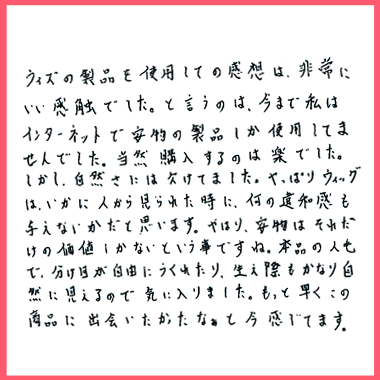 ウィズの製品を使用しての感想は、非常に
いい感触でした。と言うのは、今まで私は
インターネットで安物の製品しか使用してま
せんでした。当然購入するのは楽でした。
しかし、自然さには欠けてました。やっぱりウィッグ
は、いかに人から見られた時に、何の違和感も
与えないかだと思います。やはり、安物はそれだ
けの価値しかないという事ですね。本品の人毛
で、分け目が自由につくれたり、生え際もかなり自
然に見えるので気に入りました。もっと早くこの
商品に出会いたかったなぁと今感じてます。